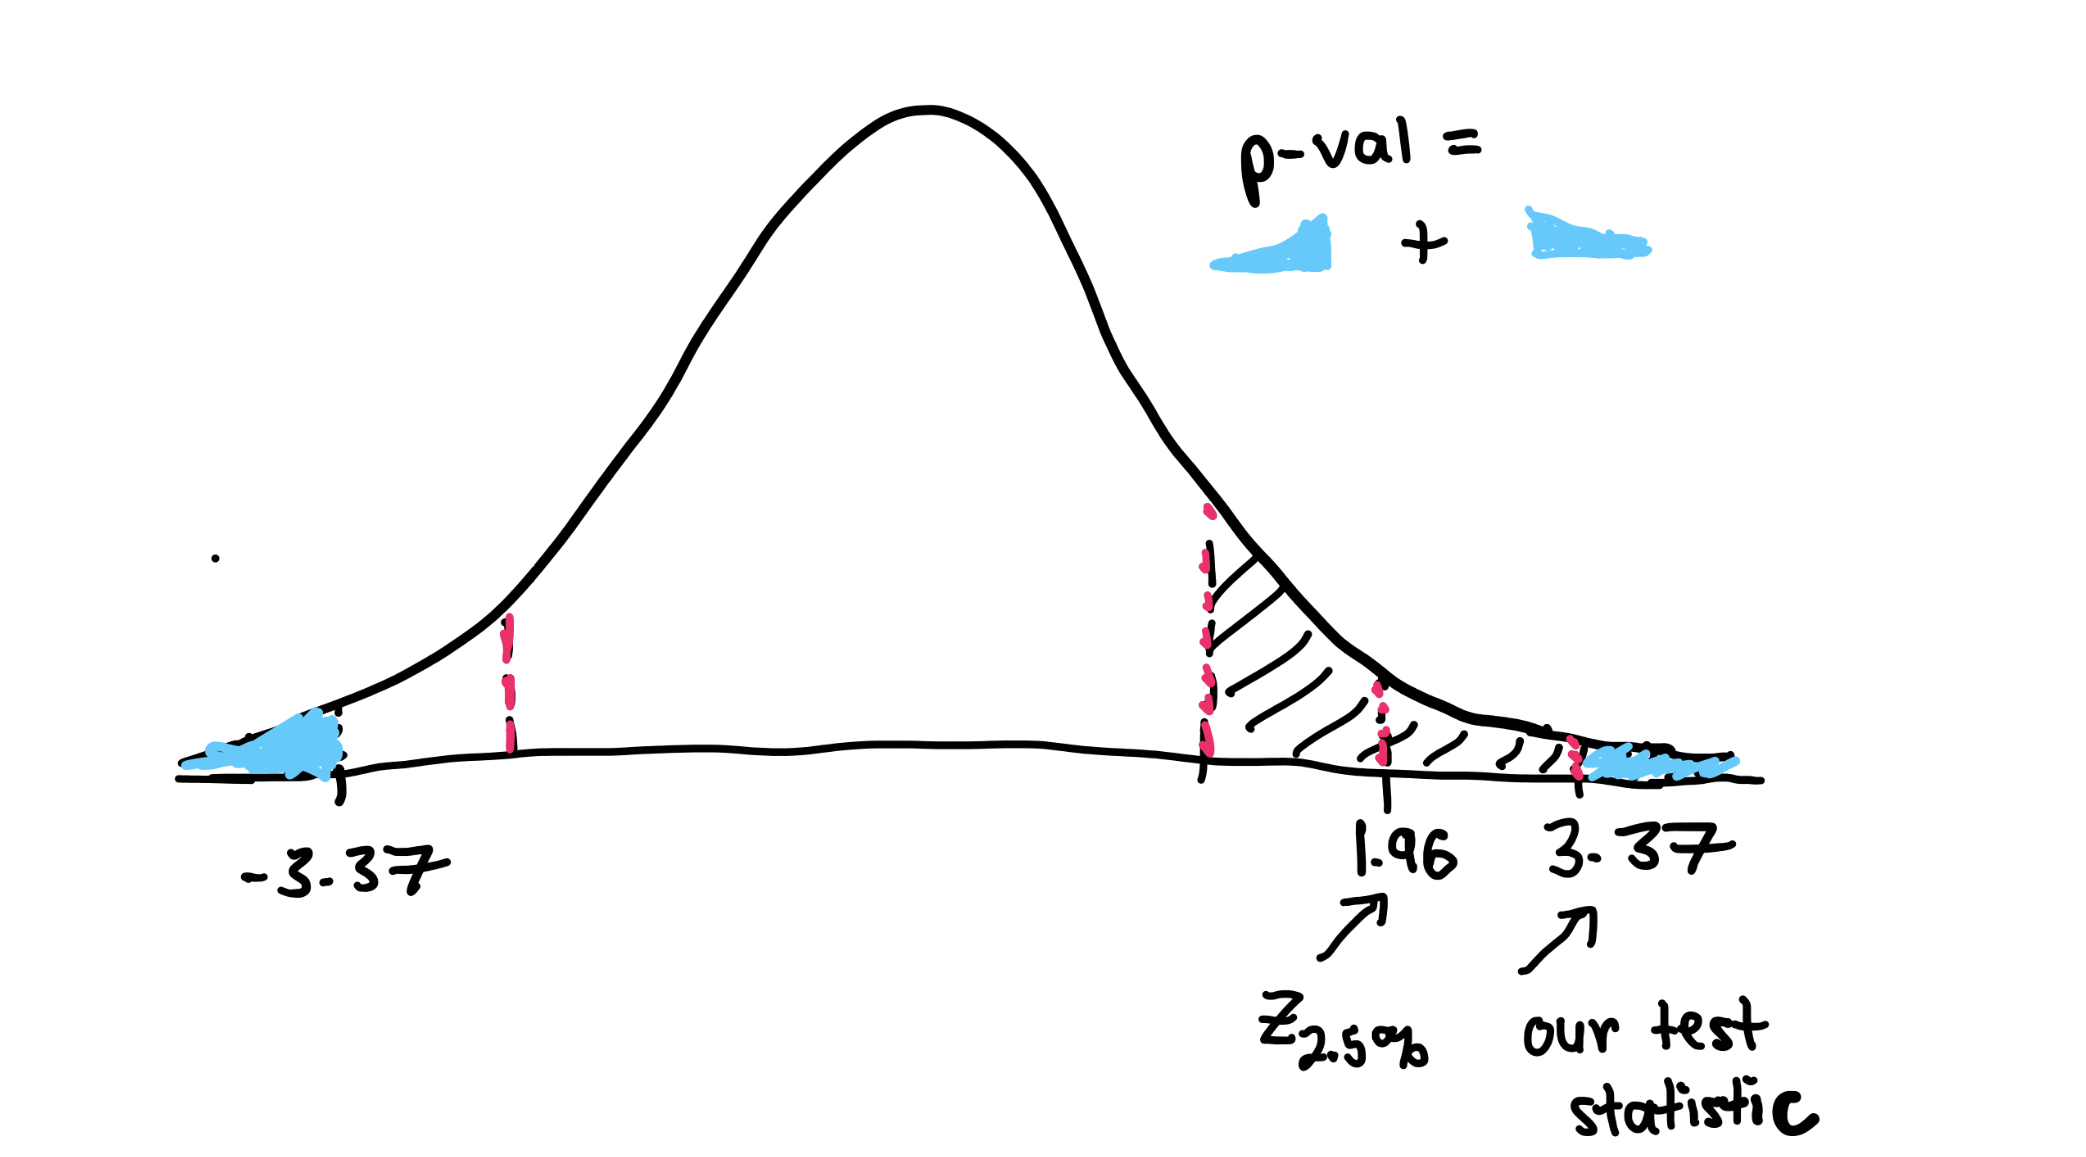 p-val =
+
-3.37
1.96
3.37
Z2.5%
our test
statistic